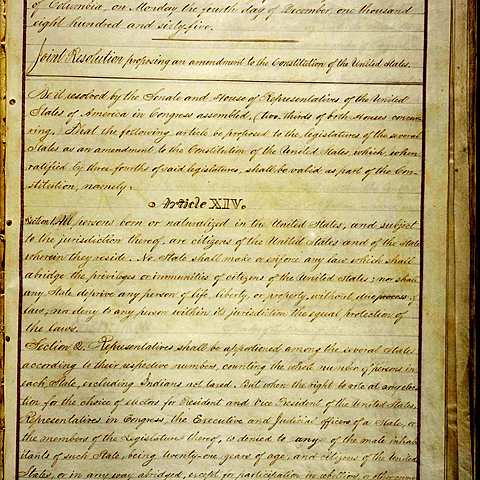 of Columbia, on Monday the fourth day of December, one thousand
eight hundred and sixty-five.
Joint Resolution proposing an amendment to the Constitution of the United States.
Be it resolved by the Senate and House of Representatives of the United
States of America in Congress assembled, (two thirds of both Houses concur-
ring,) That the following article be proposed to the legislatures of the several
States as an amendment to the Constitution of the United States, which, when
ratified by three-fourths of said legislatures, shall be valid as part of the Con-
stitution, namely:
Article XIV.
Section 1. All persons born or naturalized in the United States, and subject
to the jurisdiction thereof, are citizens of the United States and of the State
wherein they reside. No State shall make or enforce any law which shall
abridge the privileges or immunities of citizens of the United States; nor shall
any State deprive any person of life, liberty, or property, without due process of
law; nor deny to any person within its jurisdiction the equal protection of
the laws.
Section 2. Representatives shall be apportioned among the several States
according to their respective numbers, counting the whole number of persons in
each State, excluding Indians not taxed. But when the right to vote at any elec-
tion for the choice of electors for President and Vice President of the United States,
Representatives in Congress, the Executive and Judicial officers of a State, or
the members of the Legislature thereof, is denied to any of the male inhab-
itants of such State, being twenty-one years of age, and citizens of the United
States, or in any way abridged, except for participation in rebellion, or other